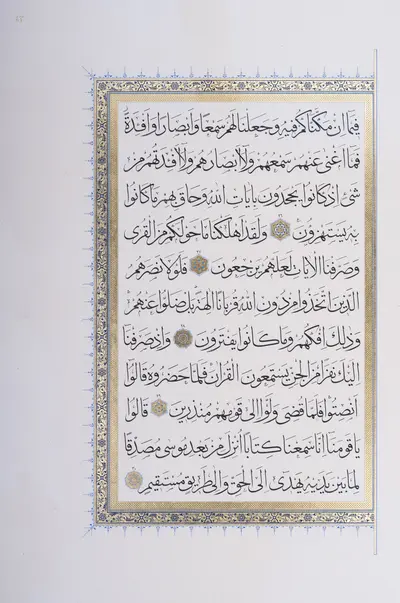 فيما ان مكناكم فيه وجعلنا لهم سمعا وابصارا وافئدة
فما اغنى عنهم سمعهم ولا ابصارهم ولا افئدتهم من
شئ اذ كانوا يجحدون بايات الله وحاق بهم ما كانوا
به يستهزؤن ولقد اهلكنا ما حولكم من القرى
وصرفنا الايات لعلهم يرجعون فلولا نصرهم
الذين اتخذوا من دون الله قربانا الهة بل ضلوا عنهم
وذلك افكهم وما كانوا يفترون واذ صرفنا
اليك نفرا من الجن يستمعون القران فلما حضروه قالوا
انصتوا فلما قضى ولوا الى قومهم منذرين قالوا
يا قومنا انا سمعنا كتابا انزل من بعد موسى مصدقا
لما بين يديه يهدى الى الحق والى طريق مستقيم